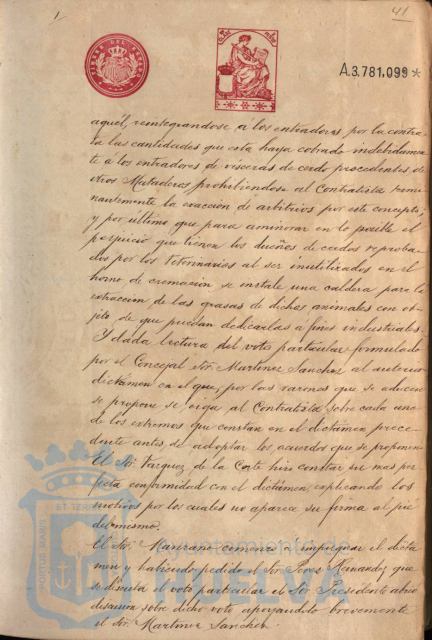 41
TIMBRE DEL ESTADO
A.3.781,099*
aquél, reintegrandose á los entradores por la contra-
ta las cantidades que esta haya cobrado indebidamen-
te a los entradores de vísceras de cerdo procedentes de
otros Mataderos prohibiendose al Contratista termi-
nantemente la exacción de arbitrios por este concepto;
y por ultimo que para aminorar en lo posible el
perjuicio que tienen los dueños de cerdos reproba-
dos por los Veterinarios al ser inutilizados en el
horno de cremación se instale una caldera para la
extracción de las grasas de dichos animales con ob-
jeto de que puedan dedicarlas a fines industriales.
Y dada lectura del voto particular formulado
por el Concejal Sr. Martinez Sanchez al anterior
dictámen en el que, por las razones que se aducen
se propone se oiga al Contratista sobre cada uno
de los extremos que constan en el dictámen prece-
dente antes de adoptar los acuerdos que se proponen
El Sr. Vazquez de la Corte hizo constar su mas per-
fecta conformidad con el dictámen, explicando los
motivos por los cuales no aparece su firma al pié
del mismo.
El Sr. Manzano comenzó a impugnar el dictá-
men y habiendo pedido el Sr. Perez Hernandez que
se discuta el voto particular el Sr. Presidente abrió
discusión sobre dicho voto apoyandolo brevemente
el Sr. Martinez Sanchez.
PORTUS MARIS ET TERRAE
Ayuntamiento de
HUELVA